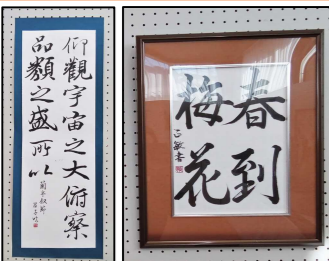 仰觀宇宙之大俯察
品類之盛所以
蘭亭敘節
春到
梅花